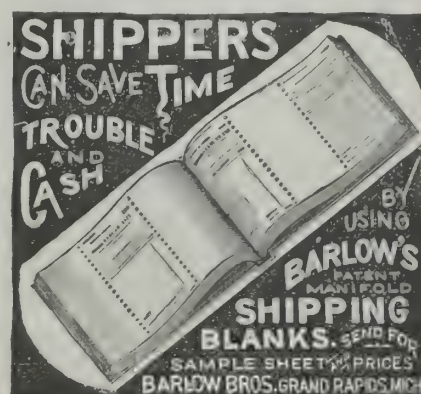 SHIPPERS
CAN SAVE TIME
TROUBLE
AND
CASH
BY
USING
BARLOW'S
PATENT
MANIFOLD
SHIPPING
BLANKS. SEND FOR
SAMPLE SHEET AND PRICES
BARLOW BROS. GRAND RAPIDS, MICH